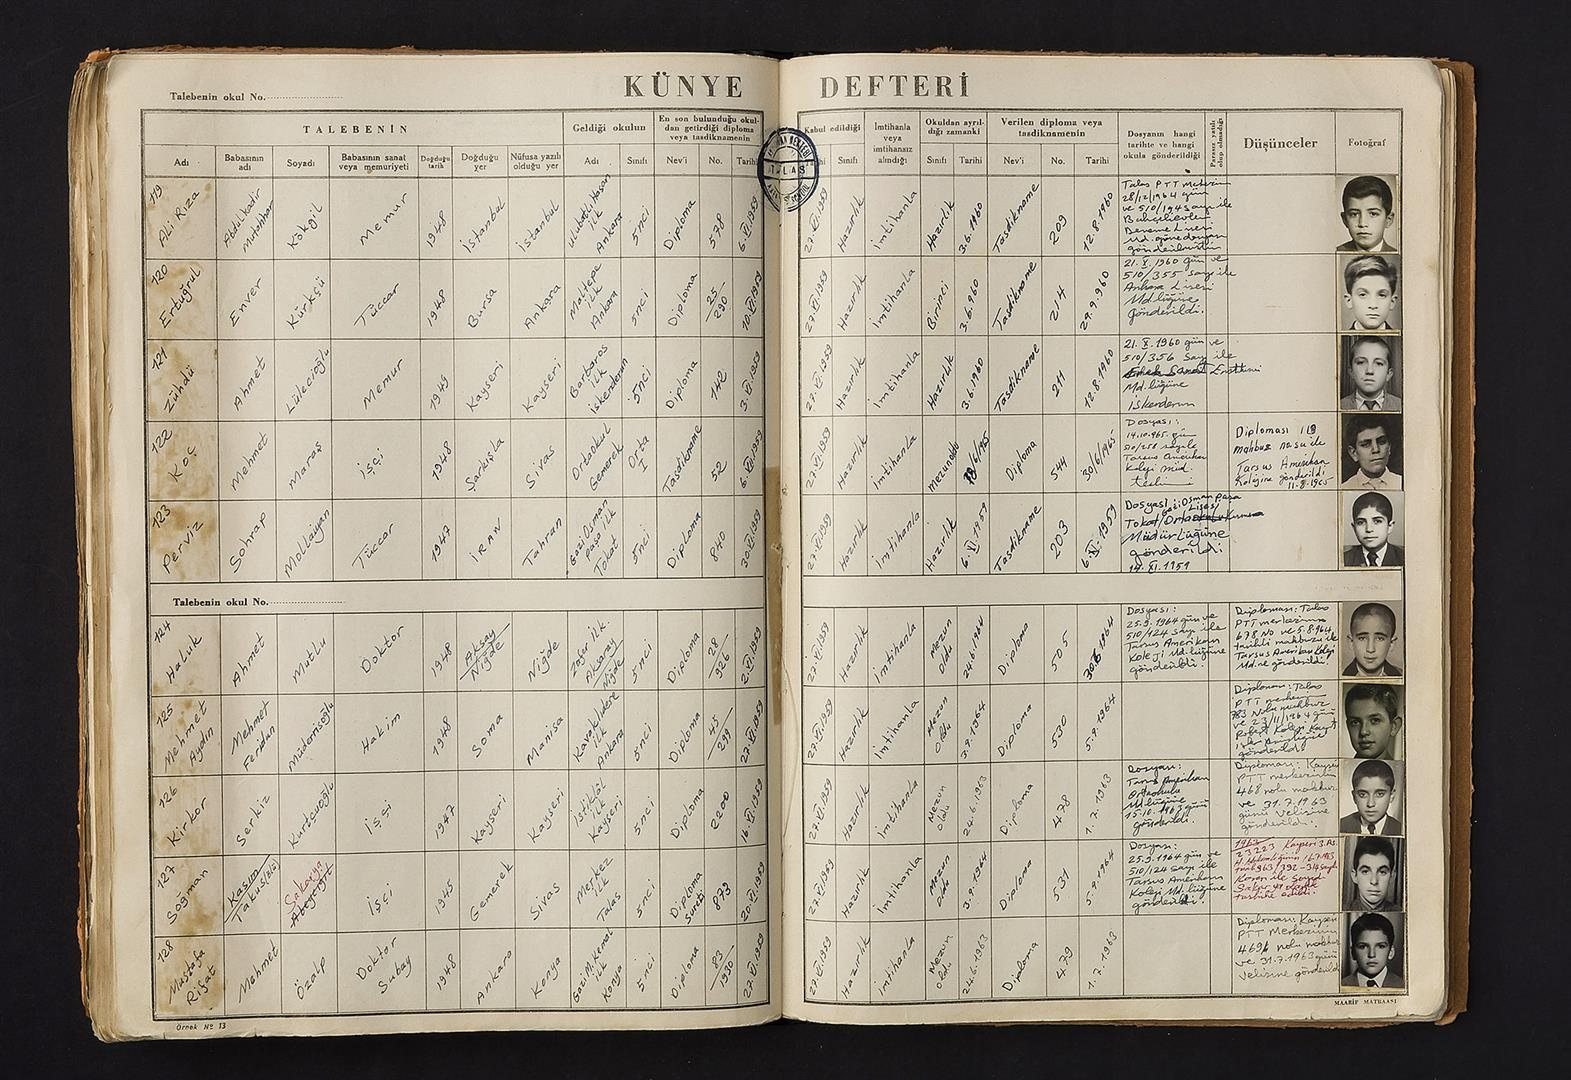 KÜNYE DEFTERİ
Talebenin okul No.
TALEBENİN
Geldiği okulun
En son bulunduğu okul-
dan getirdiği diploma
veya tasdiknamenin
Kabul edildiği
İmtihanla
veya
imtihansız
alındığı
Okuldan ayrıl-
dığı zamanki
Verilen diploma veya
tasdiknamenin
Dosyanın hangi
tarihte ve hangi
okula gönderildiği
Parasız yatılı
olup olmadığı
Düşünceler
Fotoğraf
Adı
Babasının
adı
Soyadı
Babasının sanat
veya memuriyeti
Doğduğu
tarih
Doğduğu
yer
Nüfusa yazılı
olduğu yer
Adı
Sınıfı
Nev'i
No.
Tarihi
Sınıfı
Sınıfı
Tarihi
Nev'i
No.
Tarihi
TALAS
119
Ali Rıza
Abdülkadir
Kökgil
Memur
1948
İstanbul
İstanbul
Ulubatlıhasan
ilk
Ankara
5nci
Diploma
578
6.VI.1959
27.VI.1959
Hazırlık
İmtihanla
Hazırlık
3.6.1960
Tasdikname
209
12.8.1960
Talas PTT
28/12/1964 gün
ve 510/194 sayı ile
Bahçelievler
Deneme Lisesi
120
Ertuğrul
Enver
Kürkçü
Tüccar
1948
Bursa
Ankara
Maltepe
ilk
Ankara
5nci
Diploma
25
290
10.VI.1959
27.VI.1959
Hazırlık
İmtihanla
Birinci
3.6.960
Tasdikname
214
29.9.960
21.X.1960 gün ve
510/355 sayı ile
Ankara Lisesi
Md.lüğüne
gönderildi.
121
Zühdü
Ahmet
Lülecioğlu
Memur
1949
Kayseri
Kayseri
Barbaros
ilk
İskenderun
5nci
Diploma
142
3.VI.1959
27.VI.1959
Hazırlık
İmtihanla
Hazırlık
3.6.1960
Tasdikname
211
12.8.1960
21.X.1960 gün ve
510/356 sayı ile
Erkek Sanat Enstitüsü
Md.lüğüne
İskenderun
122
Koç
Mehmet
Maraş
İşçi
1948
Şarkışla
Sivas
Ortaokul
Gemerek
Orta
I
Tasdikname
52
6.VI.1959
27.VI.1959
Hazırlık
İmtihanla
Mezunoldu
18/6/965
Diploma
544
30/6/1965
Dosyası:
14.10.965 gün
510/258 sayıyla
Tarsus Amerikan
Koleji müd.
Diploması 119
makbuz no.su ile
Tarsus Amerikan
Kolejine gönderildi
11.8.1965
123
Perviz
Sohrap
Mollaiyan
Tüccar
1947
İRAN
Tahran
Gazi Osman
paşa ilk
Tokat
5nci
Diploma
840
30.VI.1959
27.VI.1959
Hazırlık
İmtihanla
Hazırlık
6.XI.1959
Tasdikname
203
6.XI.1959
Dosyası: Gazi Osman paşa
Lisesi
Tokat Ortaokulu
Müdürlüğüne
gönderildi
14.XI.1959
Talebenin okul No.
124
Haluk
Ahmet
Mutlu
Doktor
1948
Aksay
Niğde
Niğde
ilk.
Aksaray
Niğde
5nci
Diploma
28
926
2.VI.1959
27.VI.1959
Hazırlık
İmtihanla
Mezun
oldu
24.6.1964
Diploma
505
30.6.1964
Dosyası:
25.9.1964 gün ve
510/124 sayı ile
Tarsus Amerikan
Koleji Md.lüğüne
gönderildi.
Diploması: Talas
PTT merkezinin
678 No ve 5.8.964
tarihli makbuzu ile
Tarsus Amerikan Koleji
Md.ne gönderildi.
125
Mehmet
Aydın
Mehmet
Feridan
Müderrisoğlu
Hakim
1948
Soma
Manisa
Kavaklıdere
ilk
Ankara
5nci
Diploma
45
239
27.VI.1959
27.VI.1959
Hazırlık
İmtihanla
Mezun
oldu
3.9.1964
Diploma
530
5.9.1964
Diploması: Talas
PTT merkezi
783 Nolu makbuz
ve 23/11/1964 günü
Robert Kolej Kayıt
gönderildi.
126
Kirkor
Serkiz
Kurdcuoğlu
İşçi
1947
Kayseri
Kayseri
İstiklâl
ilk
Kayseri
5nci
Diploma
2200
16.VI.1959
27.VI.1959
Hazırlık
İmtihanla
Mezun
oldu
24.6.1963
Diploma
478
1.7.1963
Dosyası:
Tarsus Amerikan
Ortaokulu
Md.lüğüne
15.10.1963 günü
gönderildi.
Diploması: Kayseri
PTT merkezinin
468 nolu makbuz
ve 31.7.1963
günü Velisine
gönderildi.
127
Soğman
Kasım
Takus
Sakarya
İşçi
1945
Gemerek
Sivas
Merkez
ilk
Talas
5nci
Diploma
Sureti
879
20.VI.1959
27.VI.1959
Hazırlık
İmtihanla
Mezun
oldu
3.9.1964
Diploma
531
5.9.1964
Dosyası:
25.9.1964 gün ve
510/124 sayı ile
Tarsus Amerikan
Koleji Md.lüğüne
gönderildi.
1963
23223 Kayseri
128
Mustafa
Rifat
Mehmet
Özalp
Doktor
Subay
1948
Ankara
Konya
Gazi M. Kemal
ilk
Konya
5nci
Diploma
83
1930
27.VI.1959
27.VI.1959
Hazırlık
İmtihanla
Mezun
oldu
24.6.1963
Diploma
479
1.7.1963
Diploması: Kayseri
PTT Merkezinin
4696 nolu makbuz
ve 31.7.1963 günü
Velisine gönderildi
Örnek No 13
MAARİF MATBAASI